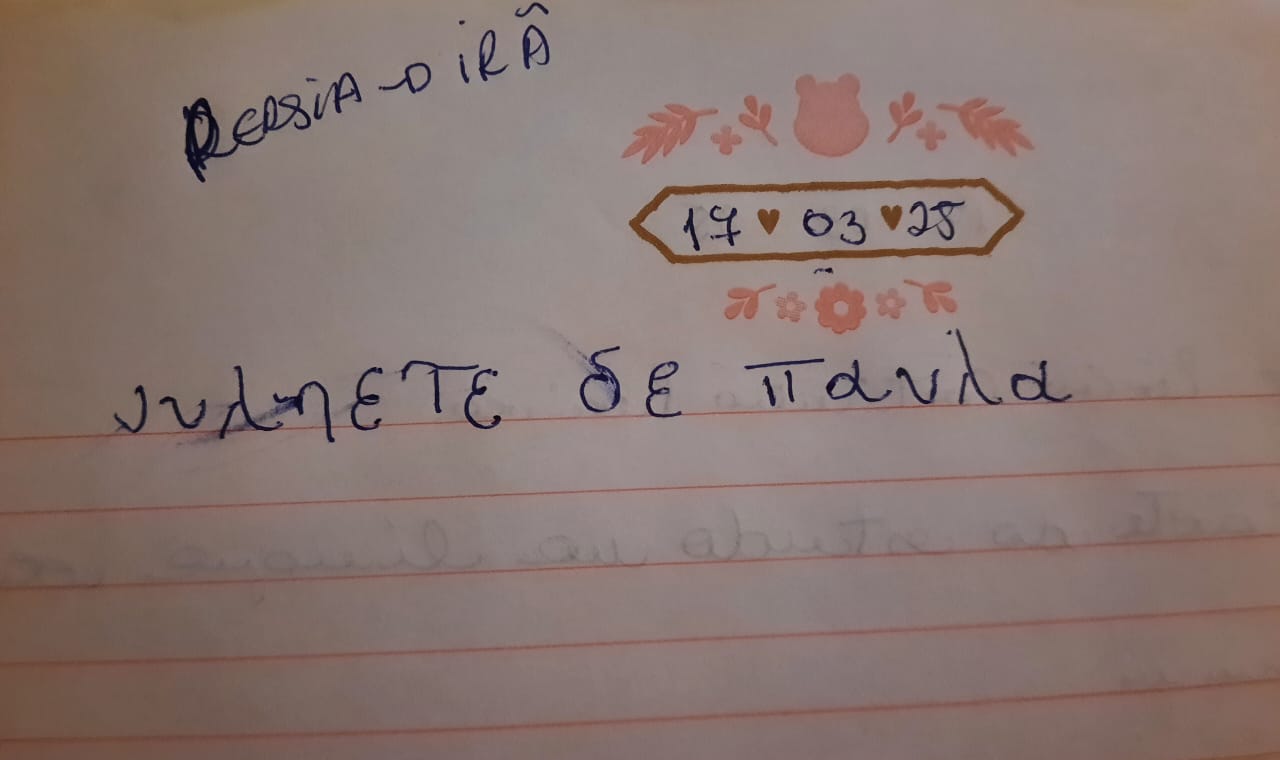 PERSIA → IRÃ
17 03 25
νυληετε δε παυλα